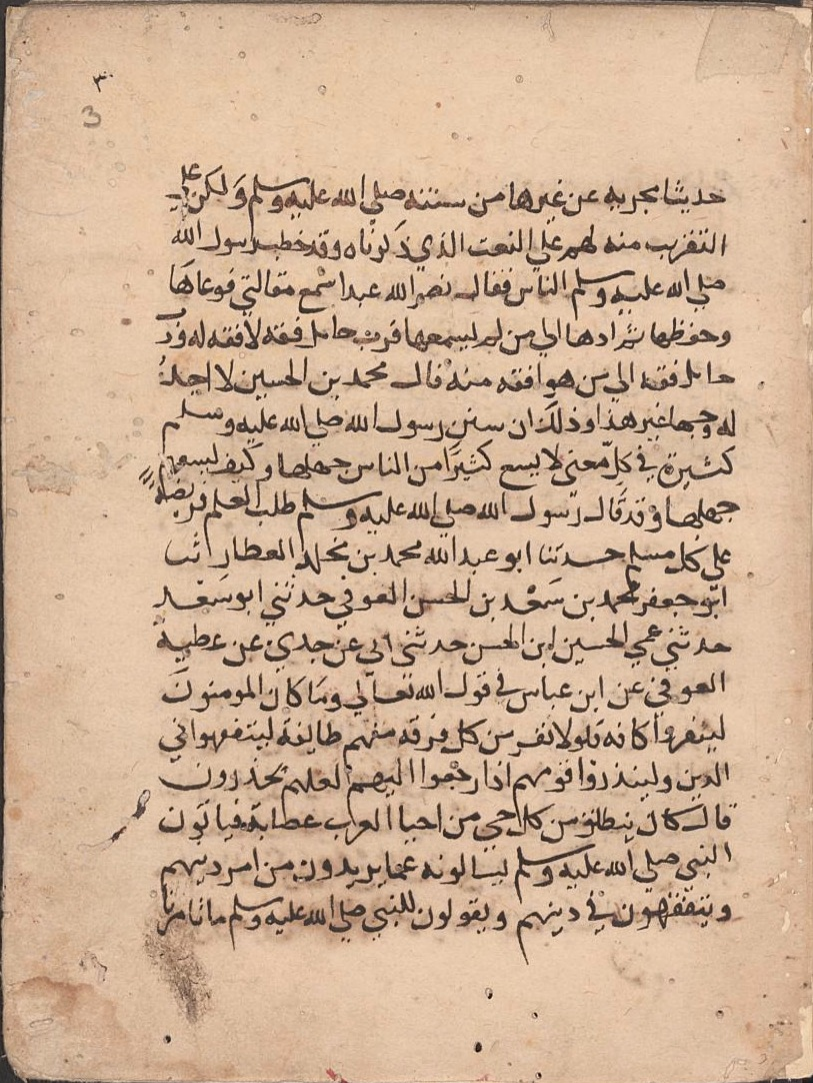 ٣
3
حديثا يجريه عن غيرها من سننه صلي الله عليه وسلم ولكن علي
التقرب منه لهم علي النعت الذي ذكرناه وقد خطب رسول الله
صلي الله عليه وسلم الناس فقال نضر الله عبدا سمع مقالتي فوعاها
وحفظها ثم ادها الي من لم يسمعها فرب حامل فقه لا فقه له ورب
حامل فقه الي من هو افقه منه قال محمد بن الحسين لا اجد
له وجها غير هذا وذلك ان سنن رسول الله صلي الله عليه وسلم
كثيرة في كل معني لا يسع كثيرا من الناس جهلها وكيف يسعهم
جهلها وقد قال رسول الله صلي الله عليه وسلم طلب العلم فريضة
علي كل مسلم حدثنا ابو عبد الله محمد بن مخلد العطار انبا
ابو جعفر محمد بن سعد بن الحسن العوفي حدثني ابو سعد
حدثني عمي الحسين ابن الحسن حدثني ابي عن جدي عن عطية
العوفي عن ابن عباس في قول الله تعالي وما كان المومنون
لينفروا كافه فلولا نفر من كل فرقه منهم طايفة ليتفقهوا في
الدين ولينذروا قومهم اذا رجعوا اليهم لعلهم يحذرون
قال كان ينطلق من كل حي من احيا العرب عصابة فياتون
النبي صلي الله عليه وسلم ليسالونه عما يريدون من امر دينهم
ويتفقهون في دينهم ويقولون للنبي صلي الله عليه وسلم ما تامرنا